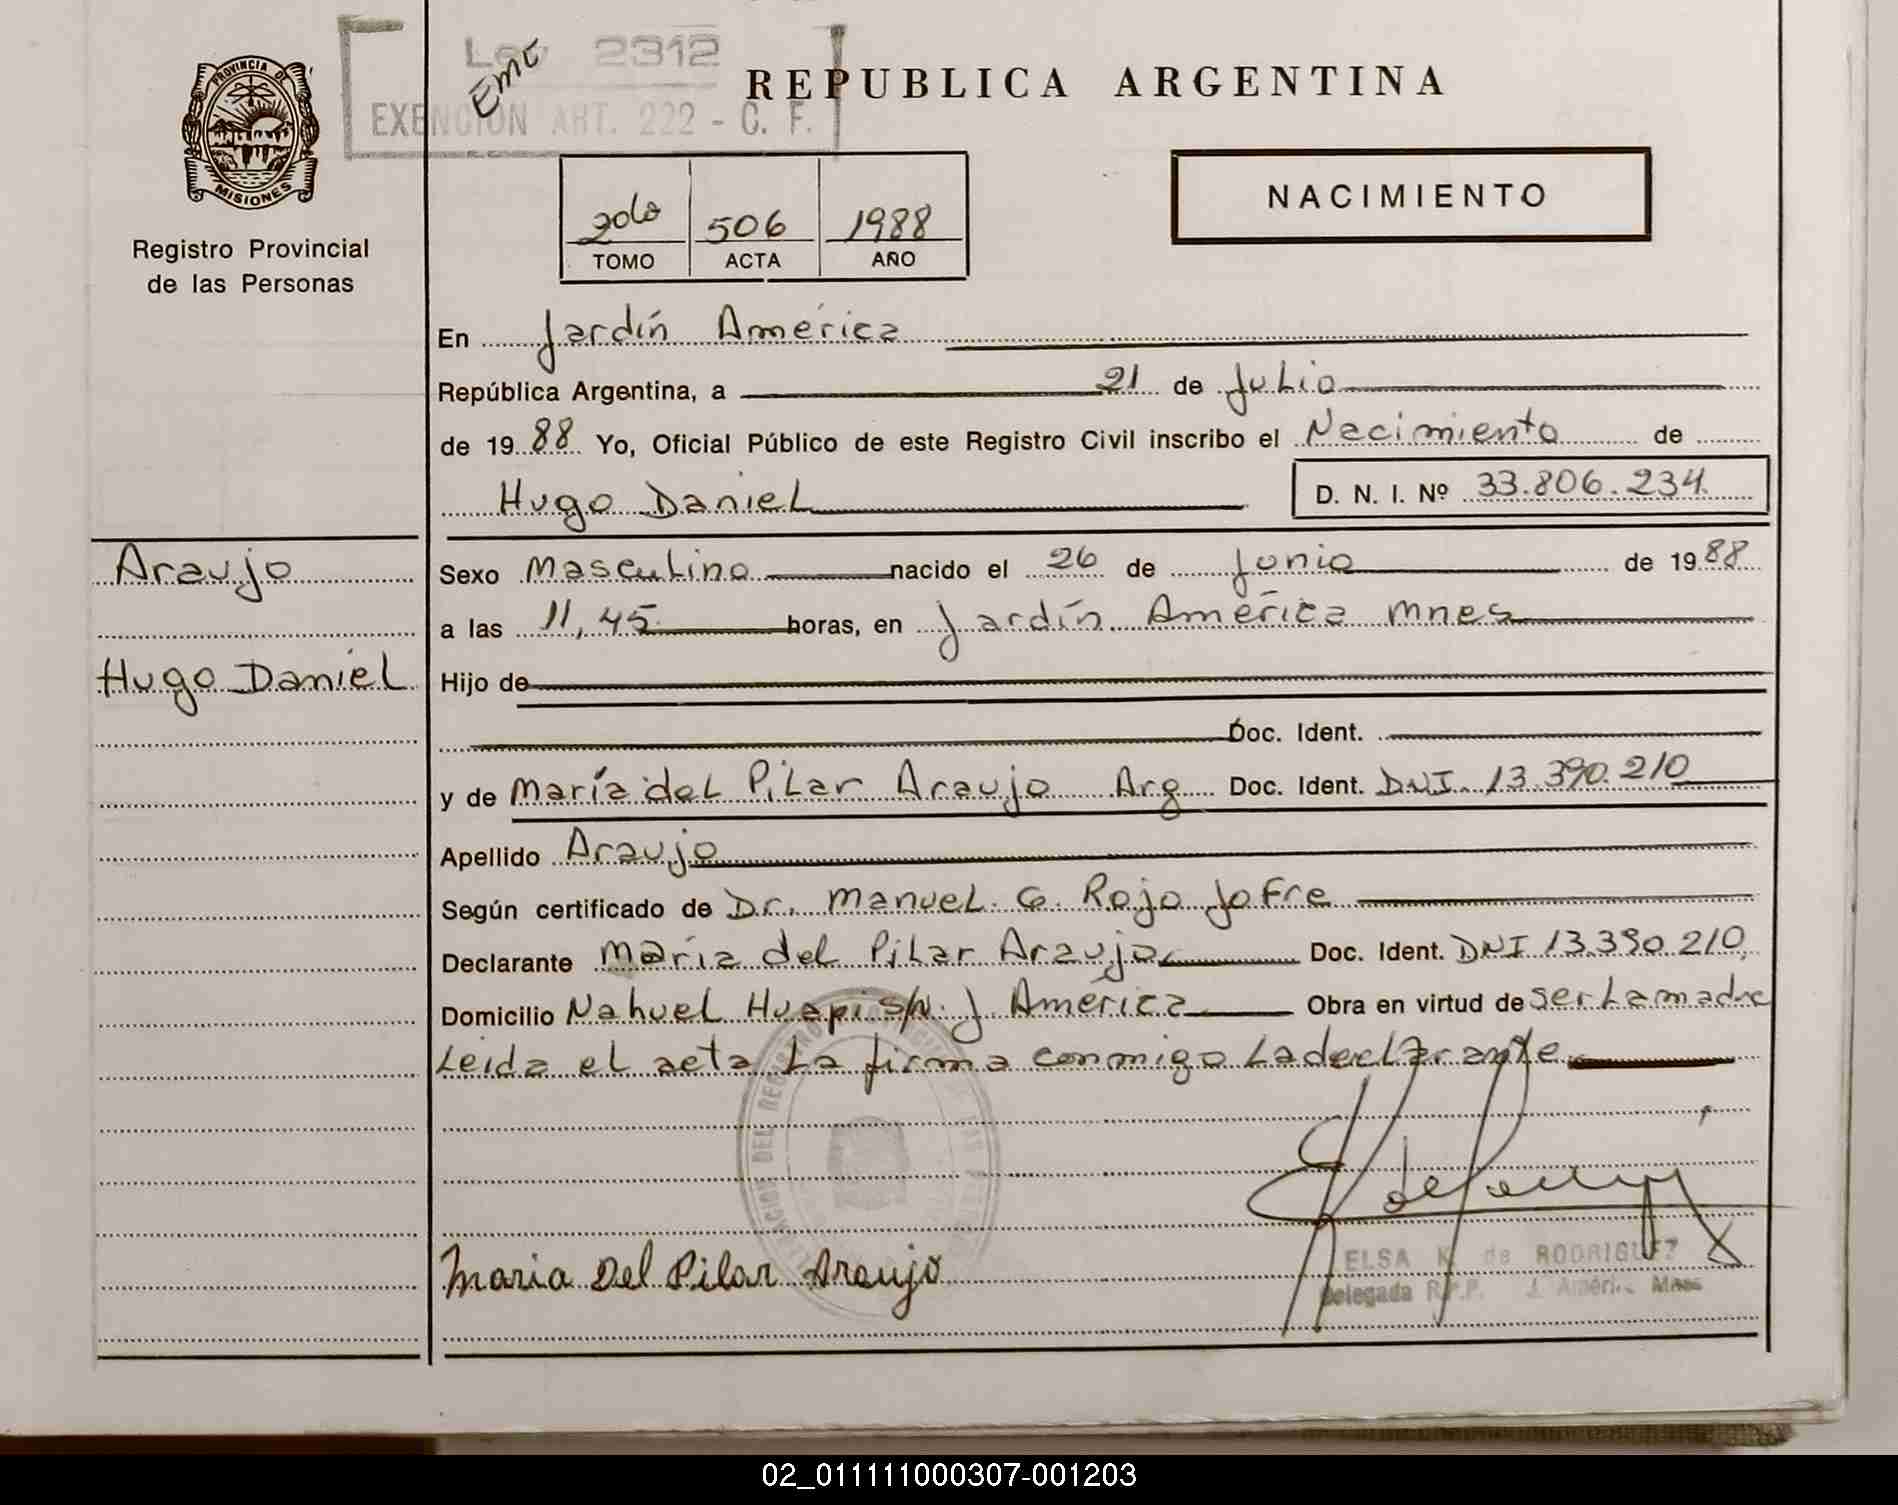 PROVINCIA DE
MISIONES
Registro Provincial
de las Personas
Ley 2312
EMC
EXENCION ART. 222 - C. F.
REPUBLICA ARGENTINA
NACIMIENTO
2do 506 1988
TOMO ACTA AÑO
En Jardín América
República Argentina, a 21 de Julio
de 1988 Yo, Oficial Público de este Registro Civil inscribo el Nacimiento de
Hugo Daniel D. N. I. Nº 33.806.234
Araujo
Hugo Daniel
Sexo Masculino nacido el 26 de Junio de 1988
a las 11,45 horas, en Jardín América Mnes
Hijo de
Doc. Ident.
y de María del Pilar Araujo Arg Doc. Ident. DNI. 13.390.210
Apellido Araujo
Según certificado de Dr. Manuel G. Rojo Jofre
Declarante María del Pilar Araujo Doc. Ident. DNI 13.390.210
Domicilio Nahuel Huapi s/n. J América Obra en virtud de ser La madre
Leida el acta La firma conmigo La declarante
Maria Del Pilar Araujo
ELSA K. de RODRIGUEZ
Delegada R.P.P. J. América Mnes
02_011111000307-001203